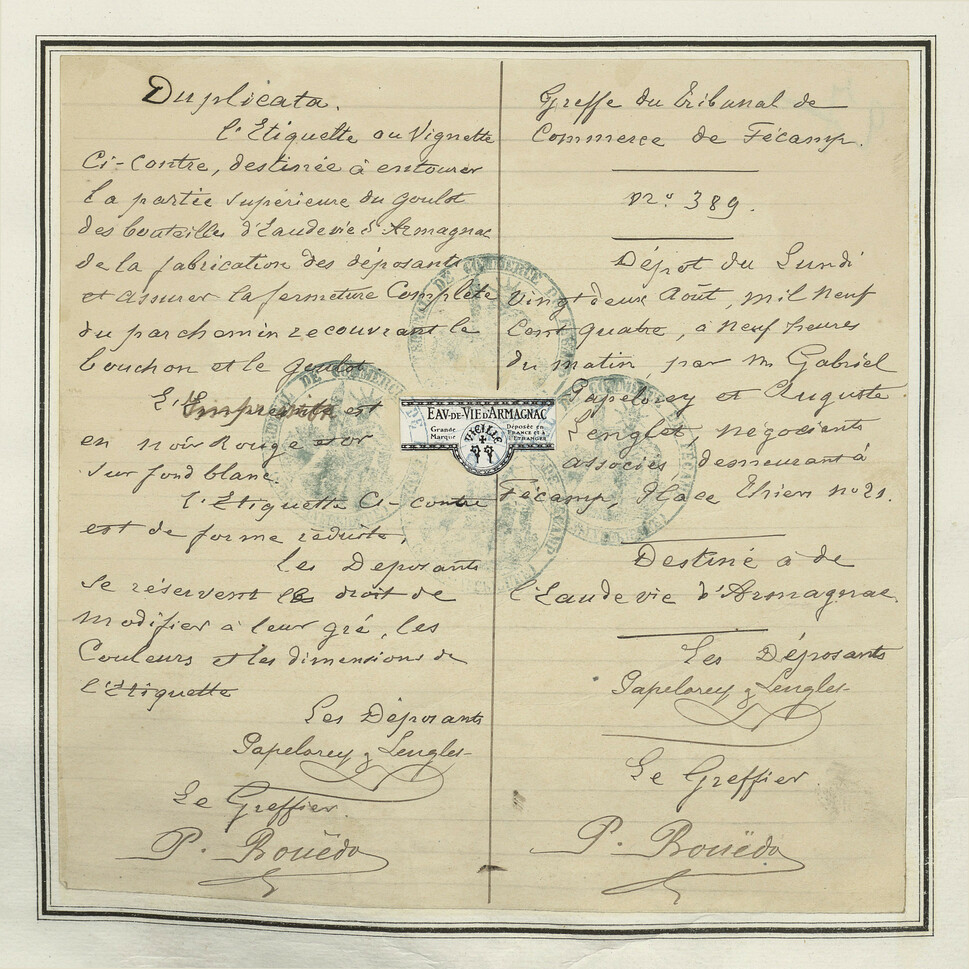 Duplicata.
l'Etiquette ou Vignette
Ci-contre, destinée à entourer
la partie supérieure du goulot
des bouteilles d'Eaudevie d'Armagnac
de la fabrication des déposants
et assurer la fermeture Complète
du parchemin recouvrant le
bouchon et le goulot
L'Empreinte est
en noir Rouge et or
sur fond blanc.
l'Etiquette Ci-contre
est de forme réduite,
Les Deposants
se réservent le droit de
modifier à leur gré, les
Couleurs et les dimensions de
l'Etiquette
Les Déposants
Papelorey & Lenglet
Le Greffier.
P. Rouëdo
EAV-DE-VIE D'ARMAGNAC
Grande Marque
VIEILLE
Déposée en FRANCE et à L'ETRANGER
Greffe du Tribunal de
Commerce de Fécamp.
no. 389.
Dépot du Lundi
vingt deux Août, mil neuf
Cent quatre, à neuf heures
du matin, par m Gabriel
Papelorey et Auguste
Lenglet, négociants
associés demeurant à
Fécamp, Place Thiers no 21.
Destiné à de
l'Eaudevie d'Armagnac.
Les Déposants
Papelorey & Lenglet
Le Greffier.
P. Rouëdo
TRIBUNAL DE COMMERCE DE FECAMP